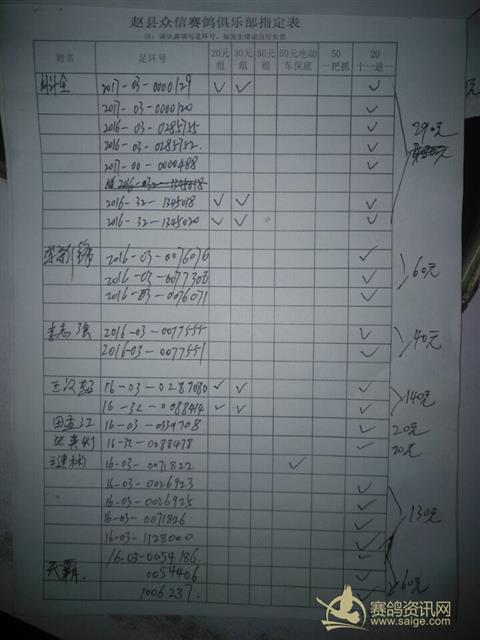 赵县众信赛鸽俱乐部指定表
注:请认真填写足环号,如发生错误自行负责
姓名 足环号 20元组 30元组 50元组 50元电动车保底 50一把抓 20十一进一
2017-03-0000129 ✓ ✓ ✓
2017-03-0000120 ✓
2016-03-0285755 ✓
2016-03-0285752. ✓
2017-00-0000488 ✓
290元
2016-32-1345018 ✓ ✓ ✓
2016-32-1345020 ✓ ✓ ✓
2016-03-0076076 ✓
2016-03-0077308 ✓
2016-03-0076071 ✓
60元
李志强 2016-03-0077555 ✓
2016-03-0077551 ✓
40元
16-03-0287080 ✓ ✓ ✓
16-32-0088414 ✓ ✓ ✓
140元
田孟江 16-03-0339708 ✓ 20元
16-32-0088478 ✓ 20元
王建彬 16-03-0071822 ✓
16-03-0026923 ✓
16-03-0026925 ✓
16-03-0071826 ✓
16-03-1128000 ✓
130元
16-03-0054186. ✓
天霸. 0054406 ✓
1006237. ✓
60元
赛鸽资讯网
www.saige.com